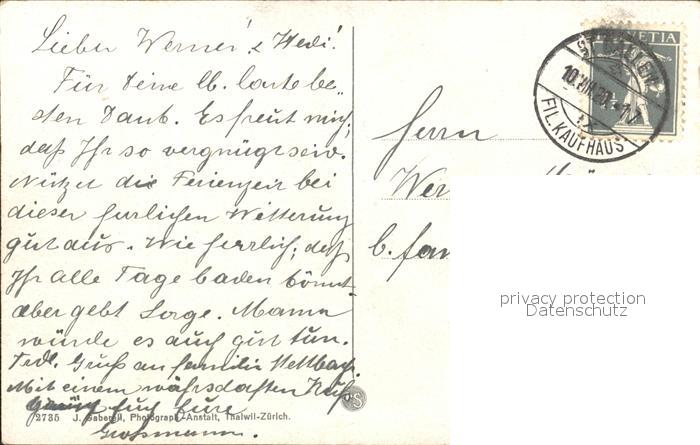 Lieber Werner! & Hedi!
Für Deine lb. Carte be-
sten Dank. Es freut mich,
daß Ihr so vergnügt seid.
Nützet die Ferienzeit bei
dieser herrlichen Witterung
gut aus. Wie herrlich, daß
Ihr alle Tage baden könnt.
aber gebt Sorge. Mama
würde es auch gut tun.
Frdl. Gruß an Familie
Mit einem währschaften Kuß
Euch Eure
Grossmama.
2735 J. Gaberell, Photograph-Anstalt, Thalwil-Zürich.
HELVETIA
ST. GALLEN
FIL. KAUFHAUS
Herrn
Wer
b. Fam
privacy protection
Datenschutz